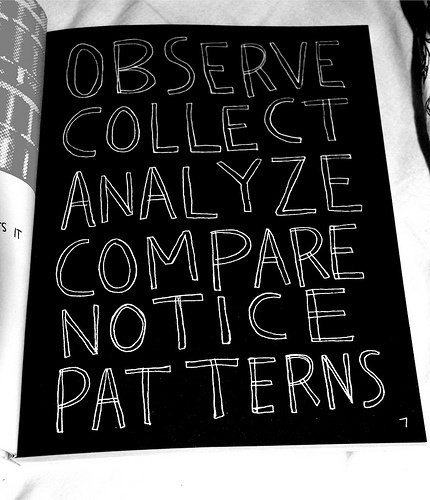 OBSERVE
COLLECT
ANALYZE
COMPARE
NOTICE
PATTERNS
7
IT